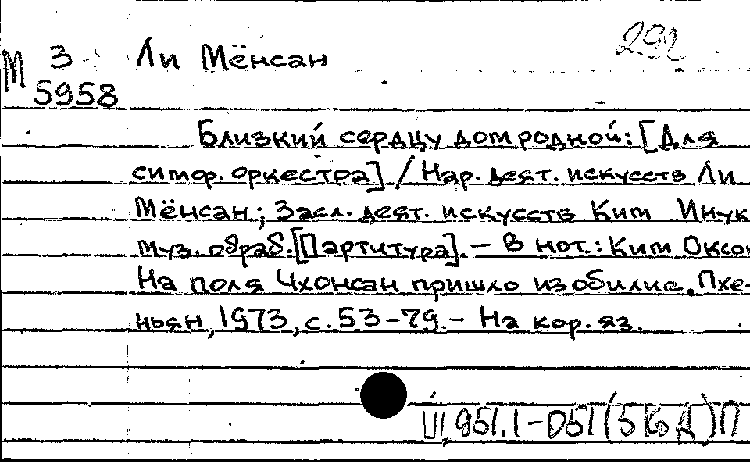 292
М З Ли Мёнсан
5958
Близкий сердцу дом родной: [Для
симф. оркестра] / Нар. деят. искусств Ли
Мёнсан; Засл. деят. искусств Ким Инук
муз. обраб. [Партитура]. – В нот.: Ким Оксон
На поля Чхонсан пришло изобилие. Пхе-
ньян, 1973, с. 53-79 – На кор. яз.
Ш 951.1-051(5КД)П